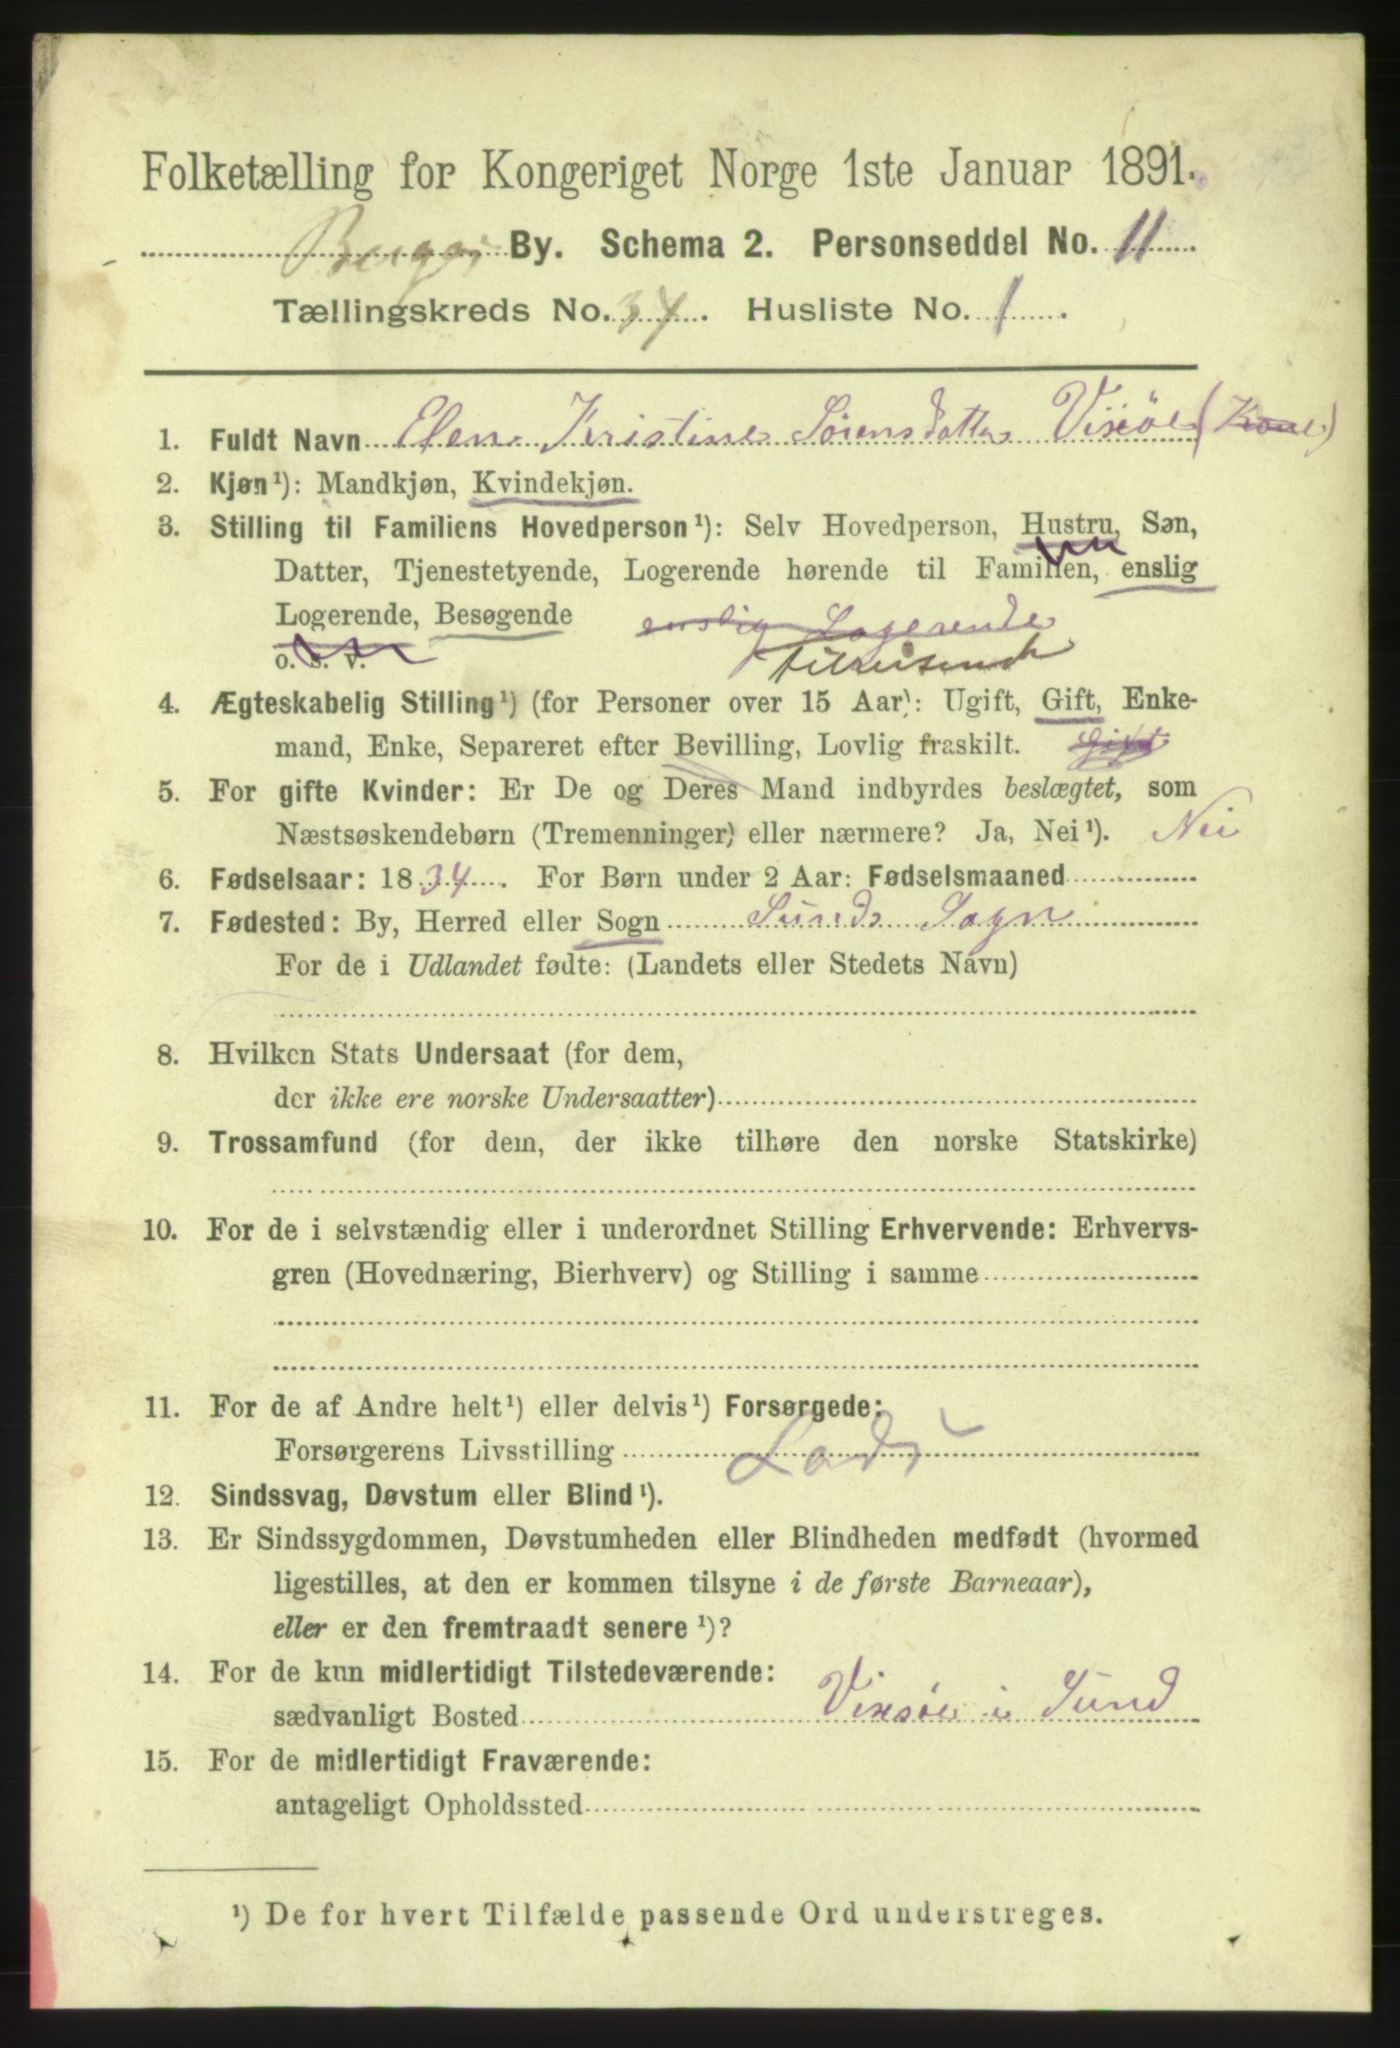 Folketælling for Kongeriget Norge 1ste Januar 1891.
Bergen By. Schema 2. Personseddel No. 11
Tællingskreds No. 34. Husliste No. 1.
1. Fuldt Navn Elen Kristine Sørensdatter Vixöe (Kone)
2. Kjøn¹): Mandkjøn, Kvindekjøn.
3. Stilling til Familiens Hovedperson¹): Selv Hovedperson, Hustru, Søn,
Datter, Tjenestetyende, Logerende hørende til Familien, enslig
Logerende, Besøgende enslig Logerende
o. s. v. tilreisende
4. Ægteskabelig Stilling¹) (for Personer over 15 Aar): Ugift, Gift, Enke-
mand, Enke, Separeret efter Bevilling, Lovlig fraskilt. Gift
5. For gifte Kvinder: Er De og Deres Mand indbyrdes beslægtet, som
Næstsøskendebørn (Tremenninger) eller nærmere? Ja, Nei¹). Nei
6. Fødselsaar: 1834. For Børn under 2 Aar: Fødselsmaaned
7. Fødested: By, Herred eller Sogn Sunds Sogn
For de i Udlandet fødte: (Landets eller Stedets Navn)
8. Hvilken Stats Undersaat (for dem,
der ikke ere norske Undersaatter)
9. Trossamfund (for dem, der ikke tilhøre den norske Statskirke)
10. For de i selvstændig eller i underordnet Stilling Erhvervende: Erhvervs-
gren (Hovednæring, Bierhverv) og Stilling i samme
11. For de af Andre helt¹) eller delvis¹) Forsørgede:
Forsørgerens Livsstilling Lods
12. Sindssvag, Døvstum eller Blind¹).
13. Er Sindssygdommen, Døvstumheden eller Blindheden medfødt (hvormed
ligestilles, at den er kommen tilsyne i de første Barneaar),
eller er den fremtraadt senere¹)?
14. For de kun midlertidigt Tilstedeværende:
sædvanligt Bosted Vixöe i Sund
15. For de midlertidigt Fraværende:
antageligt Opholdssted
¹) De for hvert Tilfælde passende Ord understreges.